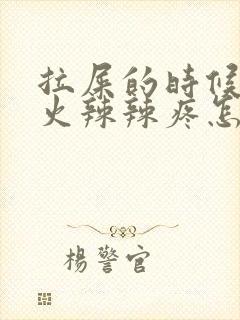 拉屎的時候
火辣辣疼怎
楊警官